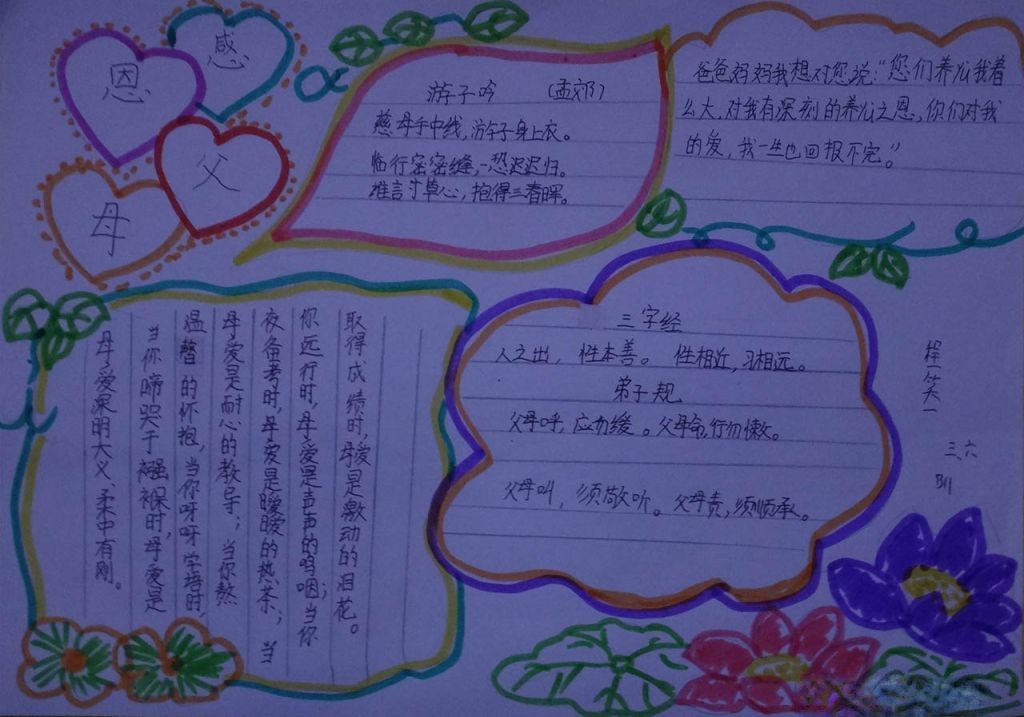 感
恩
父
母
游子吟 （孟郊）
慈母手中线，游子身上衣。
临行密密缝，恐迟迟归。
谁言寸草心，抱得三春晖。
爸爸妈妈我想对您说：“您们养儿我着
么大，对我有深刻的养儿之恩，你们对我
的爱，我一生也回报不完。”
母爱深明大义、柔中有刚。
当你啼哭于襁褓时，母爱是
温馨的怀抱，当你呀呀学语时，
母爱是耐心的教导；当你熬
夜备考时，母爱是暖暖的热茶；当
你远行时，母爱是声声的呜咽；当你
取得成绩时，母爱是激动的泪花。
三字经
人之出，性本善。性相近，习相远。
弟子规
父母呼，应勿缓。父母命，行勿懒。
父母叫，须敬听。父母责，须顺承。
笑一
三、六